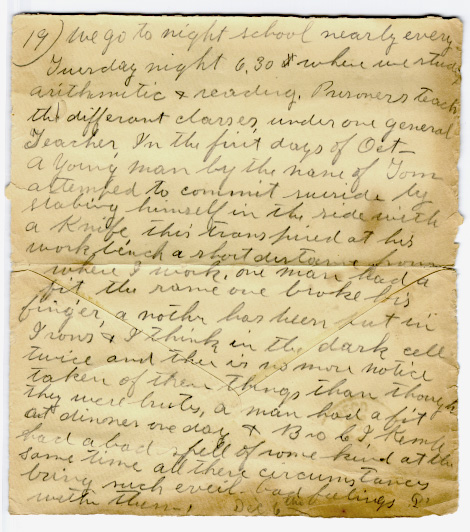 19) we go to night school nearly every
Tuesday night 6.30 where we study
arithmetic & reading. Prisoners teach
the different classes under one general
Teacher, In the first days of Oct
a young man by the name of Tom
attemped to commit suicide by
stabing himself in the side with
a Knife this transpired at his
work bench a short distance from
where I work, one man had a
fit the same one broke his
finger, a nothr has been put in
Irons & I think in the dark cell
twice and ther is no more notice
taken of them things than though
they were brutes, a man had a fit
at dinner one day & Bob I. Kemp
had a bad spell of some kind at the
same time all these circumstancy
being such eveil bad feelings
with them, Dec 6